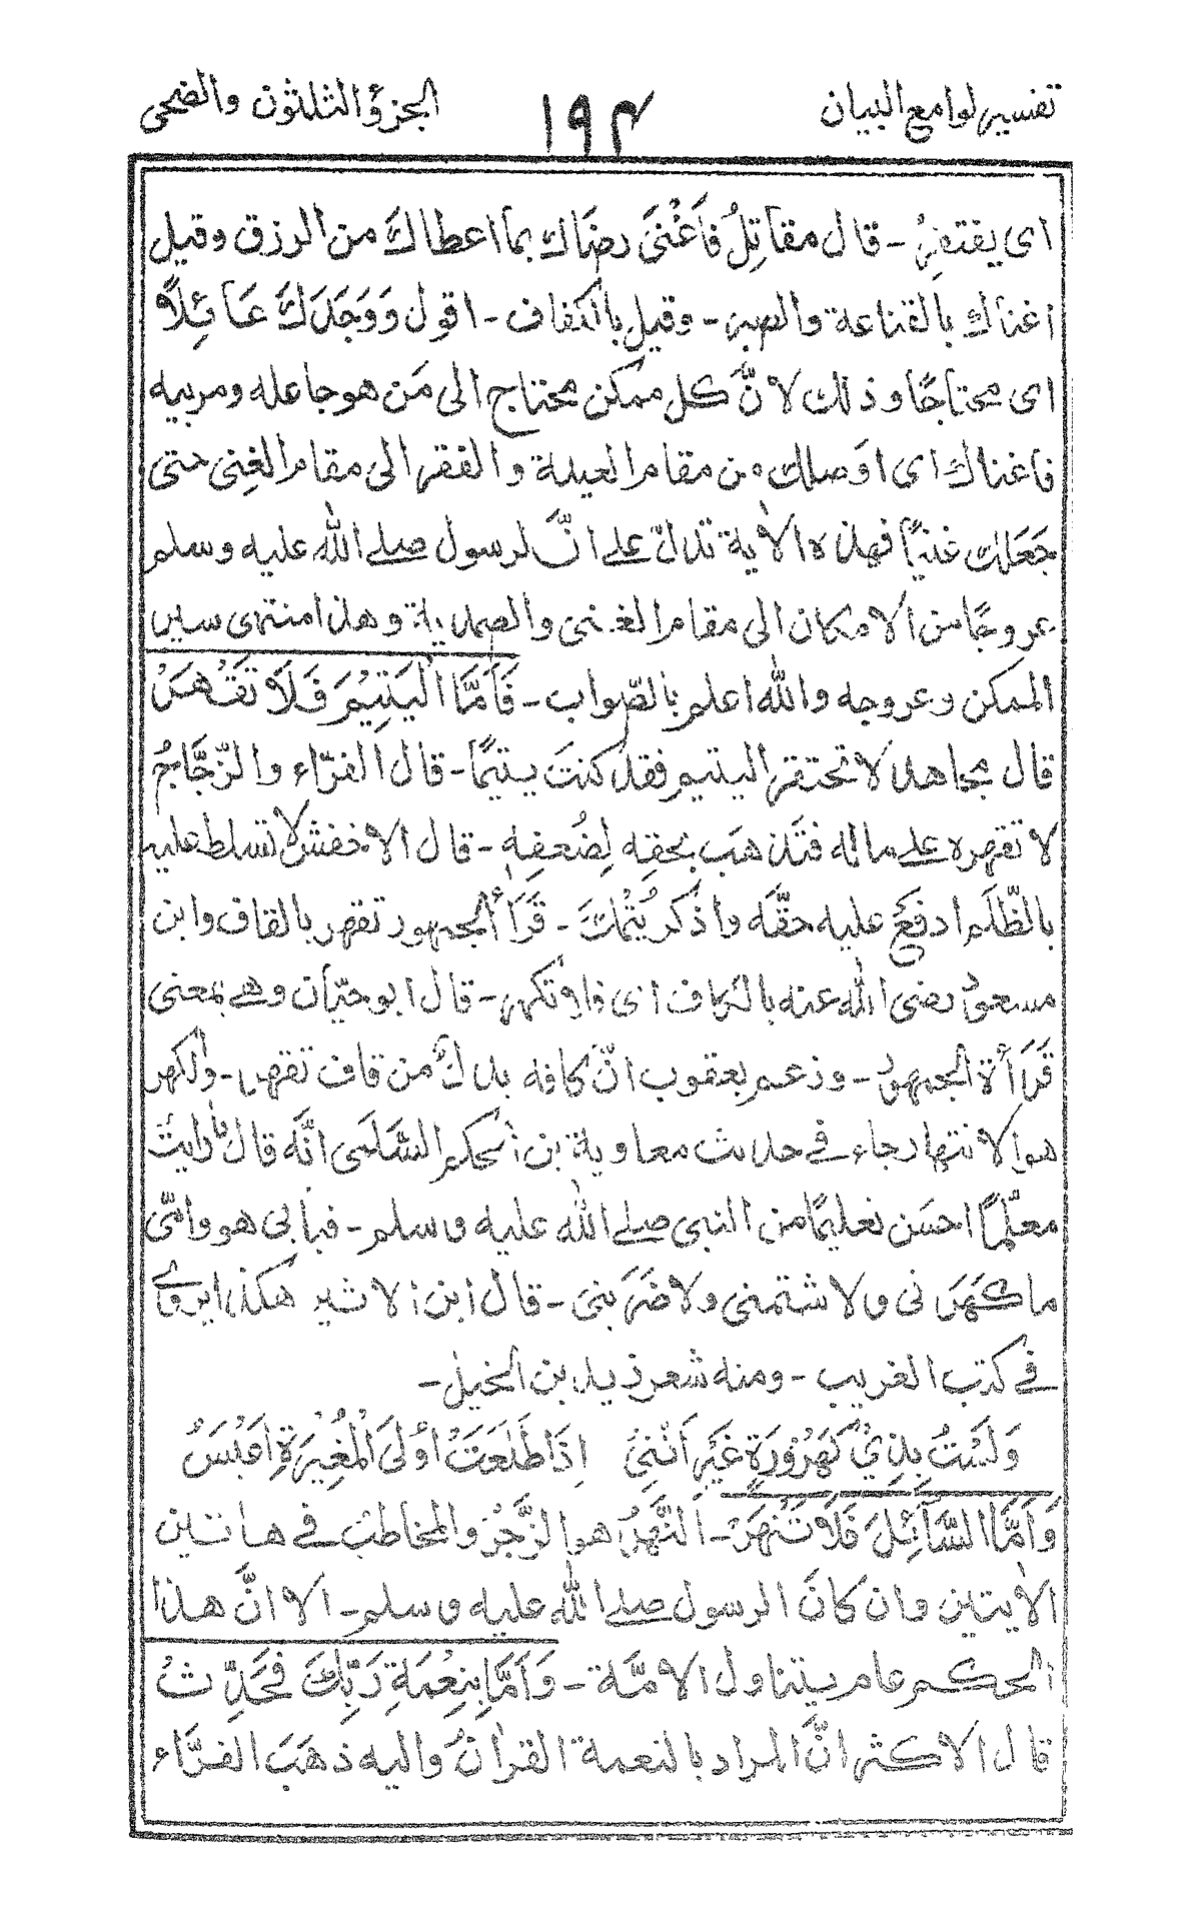 تفسير لوامع البيان ١٩٣ الجزؤ الثلثون والضحى
اى يفتقر - قال مقاتِلُ فَاَغْنَىَ رضَاك بما اعطاكَ من الرزق وقيل
اغناك بالقناعة والصبر - وقيل بالكفاف - اقول وَوَجَدَكَ عَائِلًا
اى محتاجًا وذلك لانَّ كل ممكن محتاج الى مَن هو جاعله ومربيه
فاغناك اى اوصلك من مقام العيلة والفقر الى مقام الغِنى حتى
جَعَلك غنيًا فهذه الاٰية تدلّ على انّ لرسول صلى الله عليه وسلم
عروجًا من الامكان الى مقام الغنى والصمدية وهذا منتهى سير
الممكن وعروجه والله اعلم بالصّواب - فَاَمَّا الْيَتِيْمَ فَلَا تَقْهَرْ
قال مجاهد لا تحتقر اليتيم فقد كنتَ يتيمًا - قال الفرّاء والزّجَّاجُ
لا تقهره على ماله فتذهَب بحقِه لِضُعفِه - قال الاخفش لا تسلط عليه
بالظّلَم ادفَعْ عليه حقَّه واذْكر يُتْمكَ - قَرَأ الجمهور تقهر بالقاف وابن
مسعودٍ رضى الله عنه بالكاف اى فلا تكهر - قال ابو حيّان وهے بمعنى
قَرَأة الجمهور - وزعم يعقوب انّ كافه بدلٌ من قاف تقهر - والكهر
هو الانتهار جاء فے حديث معاوية بن الحكم السَّلَمى انَّه قال ما رايتُ
معلّمًا احسَن تعليمًا من النبى صلى الله عليه وسلم - فبابى هو وامّى
ما كَهَرَنى ولا شتمنى ولا ضَرَبنى - قال ابن الاثير هكذا يروٰے
فے كتب الغريب - ومنه شعر زيد بن الخيل -
وَلَسْتُ بِذِىْ كَهْرُوْرَةٍ غَيْرَ اَنَّنِىْ اِذَا طَلَعَتْ اُوْلَى الْمُغِيْرَةِ اَعْبَسُ
وَاَمَّا السَّآئِلَ فَلَا تَنْهَرْ - اَلنَّهْرُ هو الزَّجْرُ والمخاطبُ فے هاتين
الاٰيتين وان كانَ الرسول صلى الله عليه وسلم - الا انَّ هذا
الحكم عام يتناول الامَّة - وَاَمَّا بِنِعْمَةِ رَبِّكَ فَحَدِّثْ
قال الاكثر انَّ المراد بالنعمة القراٰنُ واليه ذهَبَ الفرَّاء